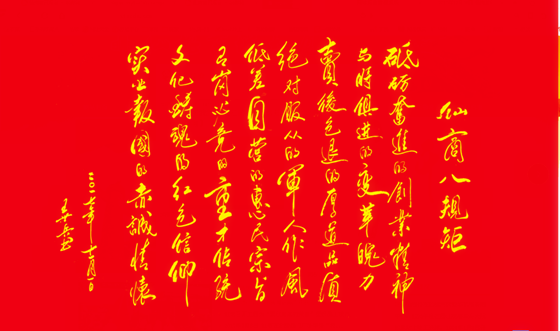 仙商八规矩
砥砺奋进的创业精神
与时俱进的变革魄力
卖后包退的厚道品质
绝对服从的军人作风
低差自营的惠民宗旨
百尚必竞的重才传统
文化铸魂的红色信仰
实业报国的赤诚情怀
二〇一七年十一月一日